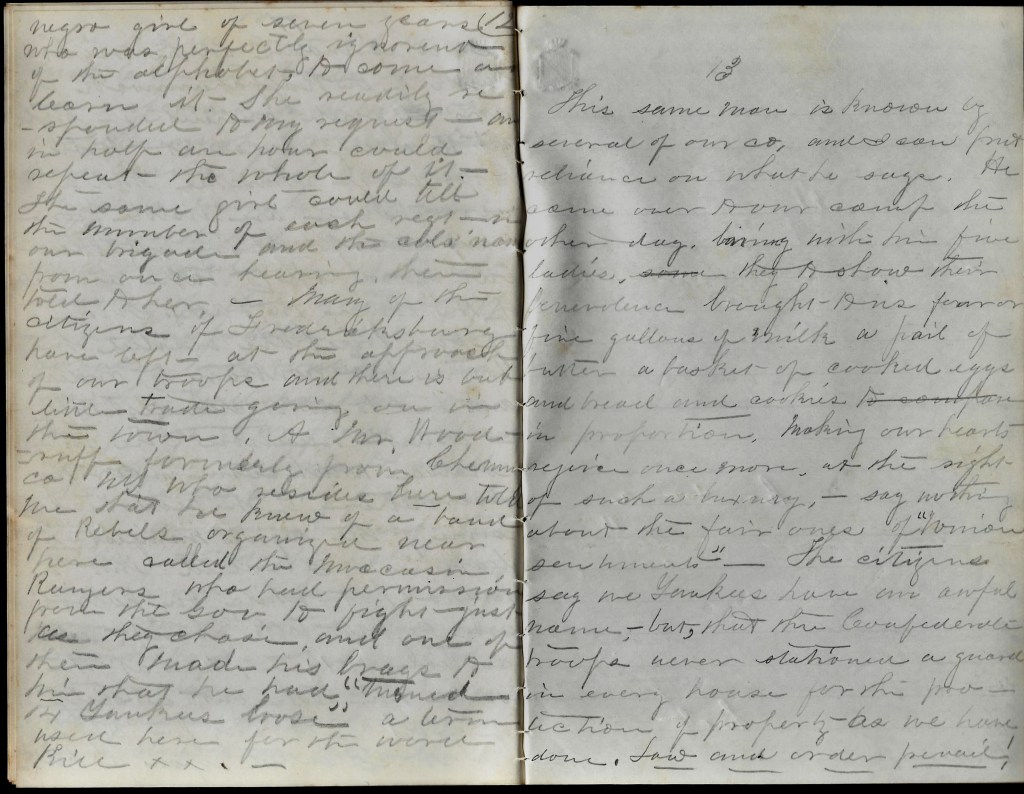 12
negro girl of seven years
who was perfectly ignorent
of the alphabet, to come an
learn it - She readily re
-sponded to my request - an
in half an hour could
repeat - the whole of it -
The same girl could tell
the number of each regt - in
our brigade and the cols' nam
from once hearing them
told to her. - Many of the
citizens of Fredricksburg
have left - at the approach
of our troops and there is but
little trade going on in
the town. A Mr Wood-
-ruff formerly from Chemun
co NY who resides here told
me that he knew of a band
of Rebels organized near
here called the Moccasin
Rangers who had permission
from the Gov to fight just
as they chose, and one of
them made his brags to
him that he had "turned
six Yankees loose" a term
used here for the word
Kill x x . -
13
This same man is known by
several of our co, and I can put
reliance on what he says. He
came over to our camp the
other day. bring with him five
ladies. some they to show their
benevolence brought to us four or
five gallons of milk a pail of
butter a basket of cooked eggs
and bread and cookies to compare
in proportion. Making our hearts
rejoice once more, at the sight
of such a luxury, - say nothing
about the fair ones of "Union
sentiments" - The citizens
say we Yankees have an awful
name, - but, that the Confederate
troops never stationed a guard
in every house for the pro-
tection of property as we have
done. Law and order prevail!